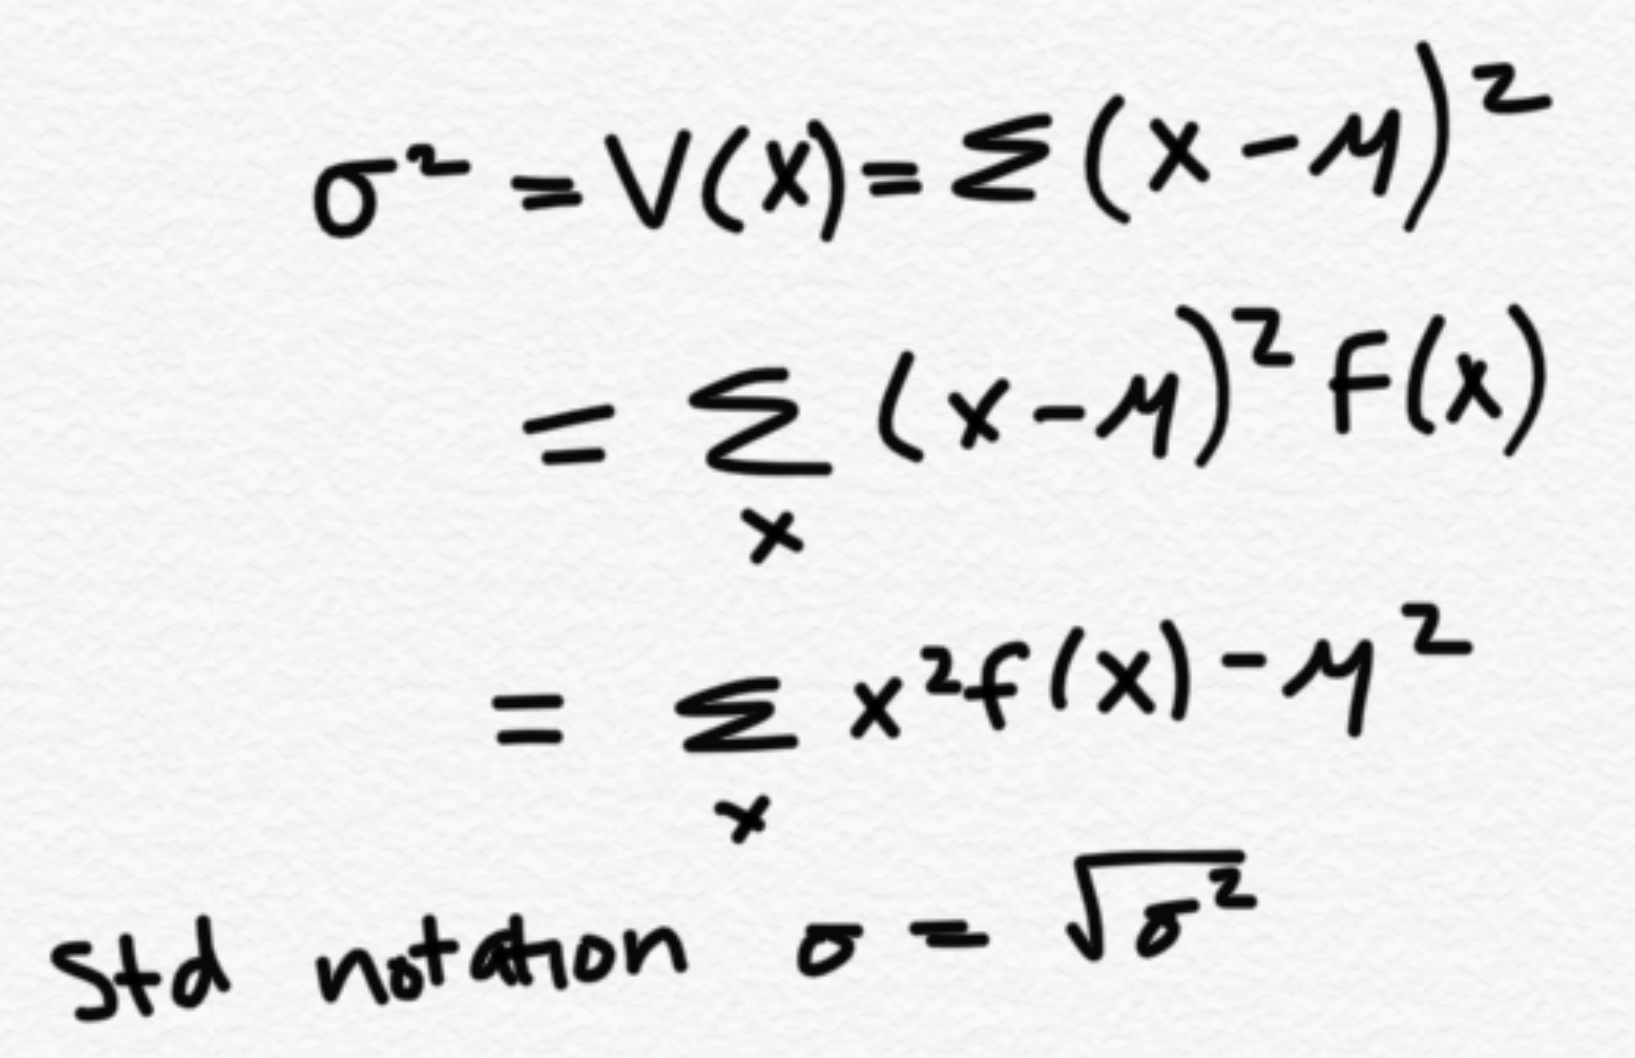 σ² = V(X) = Σ (x - μ)²
= Σₓ (x - μ)² F(x)
= Σₓ x² f(x) - μ²
std notation σ = √σ²